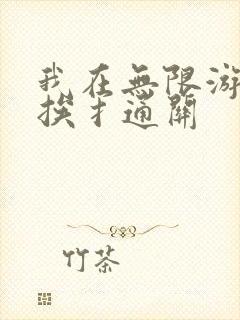 我在無限游
挨扌通關
竹茶